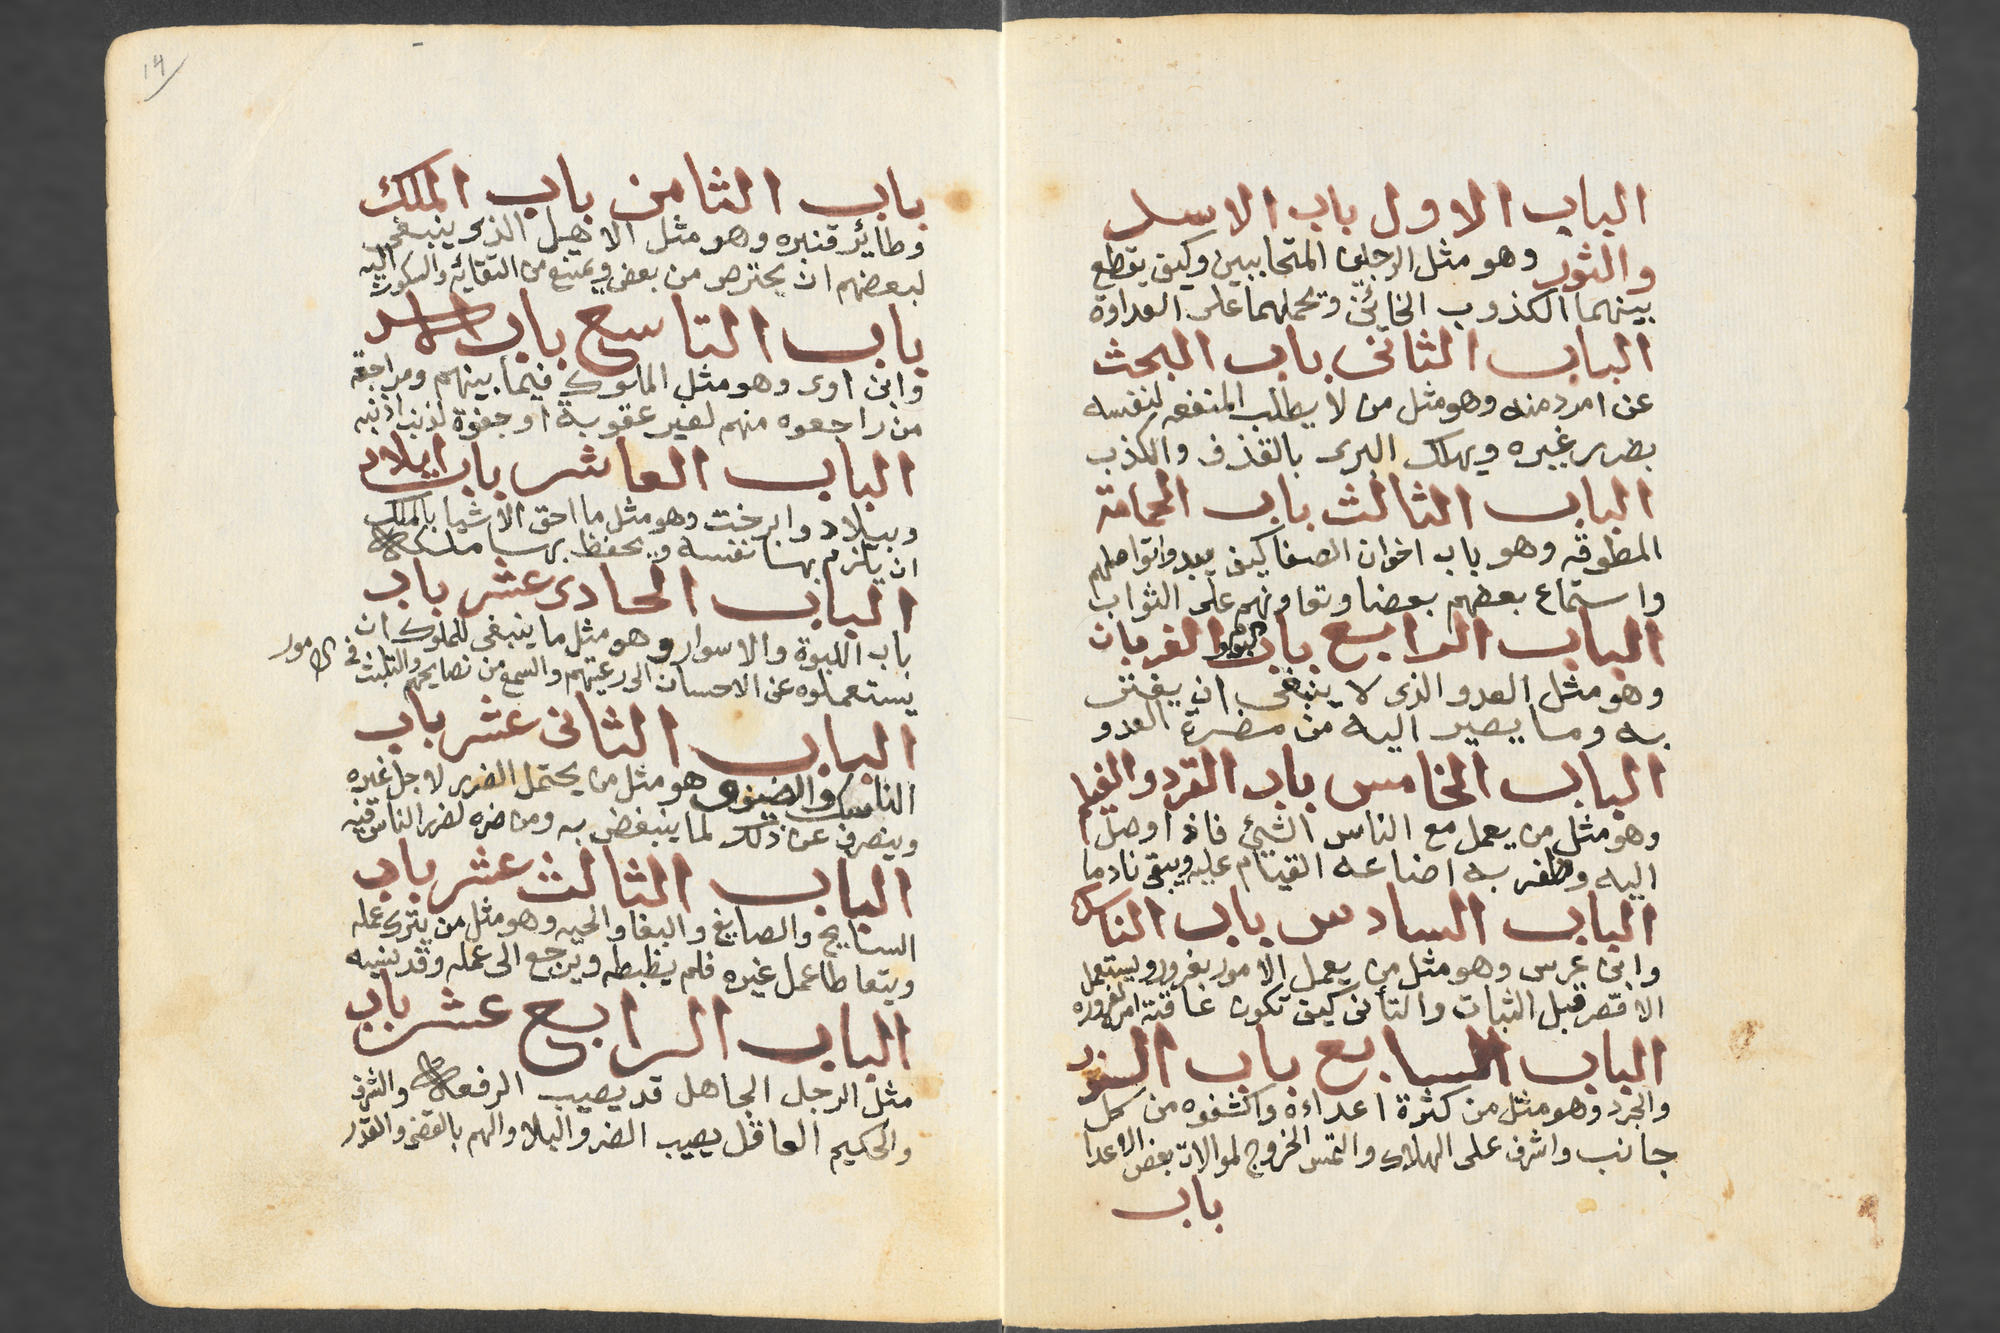 الباب الاول باب الاسد
والثور وهو مثل الرجلين المتحاببين وكيف يقطع
بينهما الكذوب الخائن ويحملهما على العداوة
الباب الثانى باب البحث
عن امر دمنه وهو مثل من لا يطلب المنفعه لنفسه
بضرر غيره ويهلك البرى بالقذف والكذب
الباب الثالث باب الحمامة
المطوقه وهو باب اخوان الصفا كيف يبدوا تواصلهم
واستماع بعضهم بعضا وتعاونهم على الثواب
الباب الرابع باب البوم والغربان
وهو مثل العدو الذى لا ينبغى ان يغتر
به وما يصير اليه من مضرة العدو
الباب الخامس باب القرد والغيلم
وهو مثل من يعمل مع الناس الشيئ فاذا وصل
اليه وظفر به اضاعه القيام عليه ويبقى نادما
الباب السادس باب الناسك
وابن عرس وهو مثل من يعمل الامور بغرور ويستعمل
الاقصر قبل الثبات والتأنى كيف تكون عاقبة امره لغروره
الباب السابع باب السنور
والجرد وهو مثل من كثرة اعداءه واكشفوه من كل
جانب واشرف على الهلاك والتمس الخروج لموالات بعض الاعدا
باب
14
باب الثامن باب الملك
وطائر قنبره وهو مثل الاهيل الذى ينبغى
لبعضهم ان يحترص من بعض ويمتنع من التقائه والسكوت اليه
باب التاسع باب الاسد
وابن اوى وهو مثل الملوك فيما بينهم ومراجعة
من راجعوه منهم لغير عقوبة او جفوة لذنب اذنبه
الباب العاشر باب ايلاد
وبيلاد وابرخت وهو مثل ما احق الاشيا بالملك
ان يلزم بها نفسه ويحفظ بها ملكه
الباب الحادى عشر باب
باب اللبوة والاسوار وهو مثل ما ينبغى للملوك ان
يستعملوه عن الاحسان الى رعيتهم والسمع من نصايحهم والتثبت فى الامور
الباب الثانى عشر باب
الناسك والضيف وهو مثل من يحتمل الضرر لاجل غيره
وينصرف عن ذلك لما ينبغض به ومن ضره لضر الناس فيه
الباب الثالث عشر باب
السايح والصايغ والببغا والحيه وهو مثل من يترك عمله
ويتعاطا عمل غيره فلم يظبطه ويرجع الى عمله وقد نسيه
الباب الرابع عشر باب
مثل الرجل الجاهل قد يصيب الرفعه والشرف
والحكيم العاقل يصيب الضر والبلا والهم بالقضى والقدر